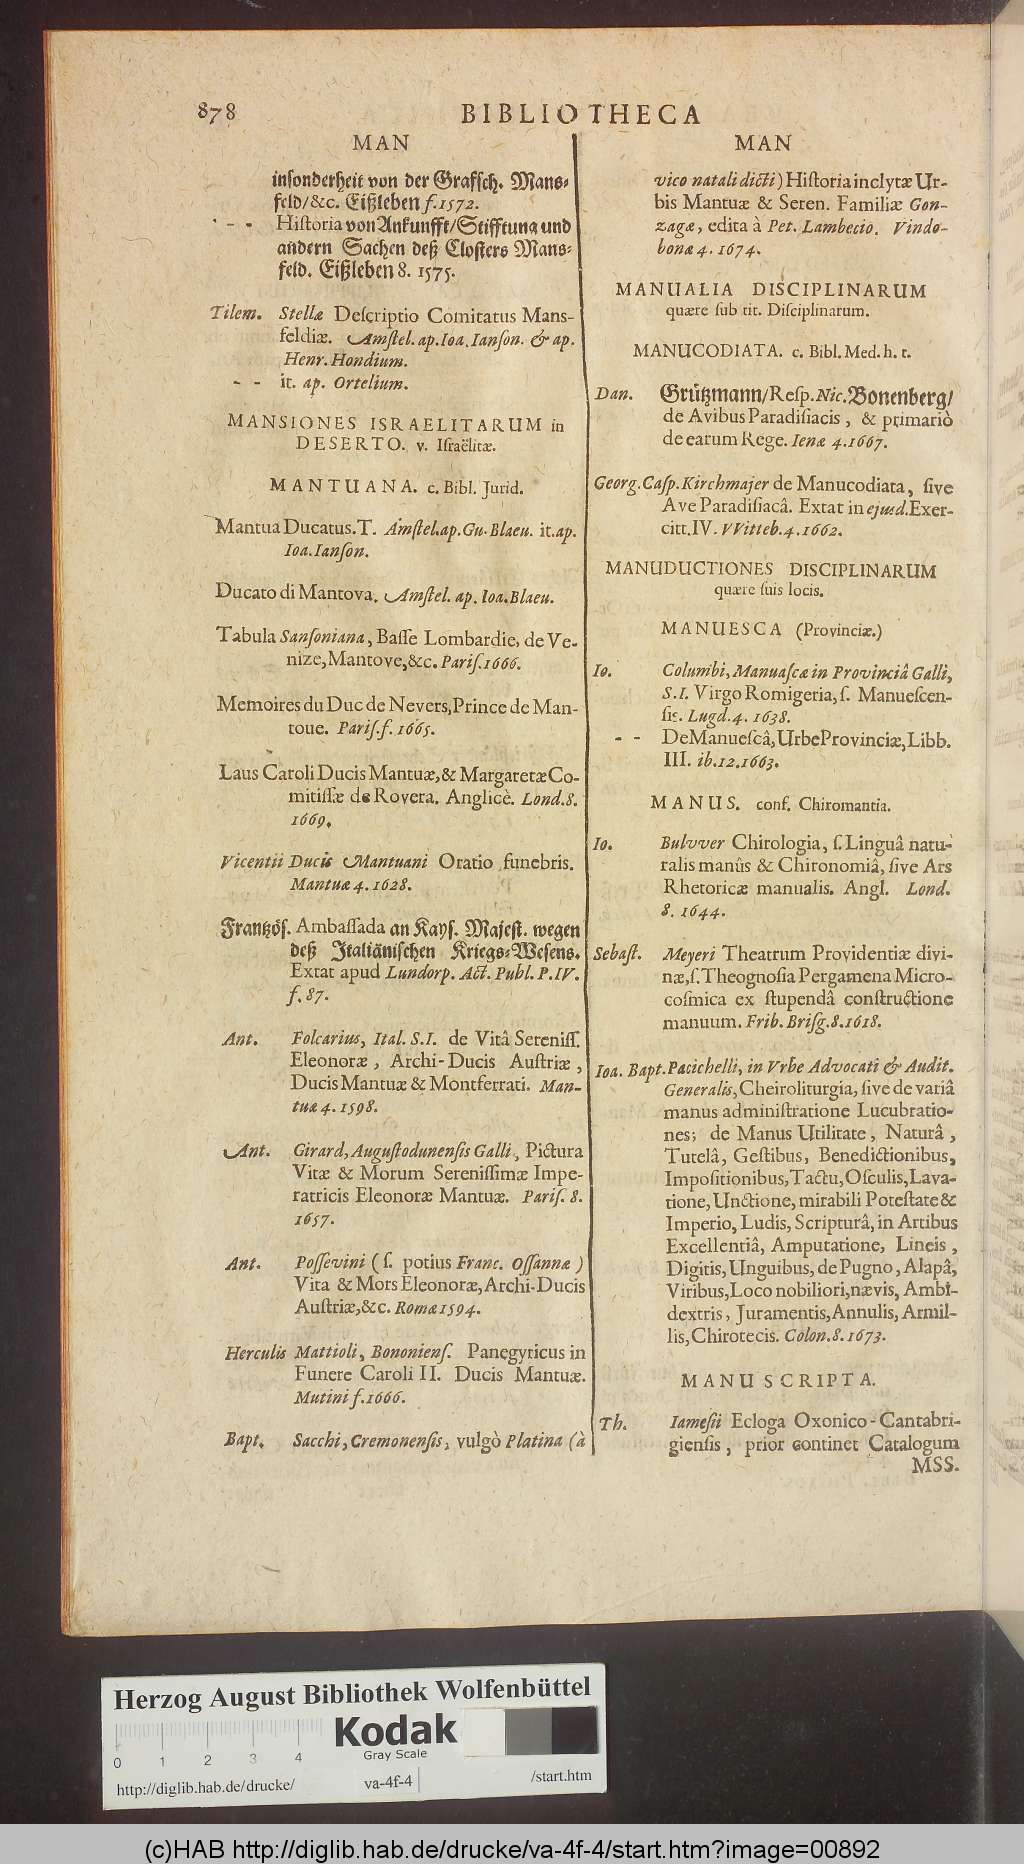 878
BIBLIOTHECA
MAN
inſonderheit von der Grafſch. Mans-
feld/&c. Eißleben f.1572.
- - Hiſtoria von Ankunfft/Stifftung und
andern Sachen deß Cloſters Mans-
feld. Eißleben 8. 1575.
Tilem. Stellæ Deſcriptio Comitatus Mans-
feldiæ. Amſtel. ap. Ioa. Ianſon. & ap.
Henr. Hondium.
- - it. ap. Ortelium.
MANSIONES ISRAELITARUM in
DESERTO. v. Iſraëlitæ.
MANTUANA. c. Bibl. Jurid.
Mantua Ducatus. T. Amſtel. ap. Gu. Blaeu. it. ap.
Ioa. Ianſon.
Ducato di Mantova. Amſtel. ap. Ioa. Blaeu.
Tabula Sanſoniana, Baſſe Lombardie, de Ve-
nize, Mantove, &c. Pariſ. 1666.
Memoires du Duc de Nevers, Prince de Man-
toue. Pariſ. f. 1665.
Laus Caroli Ducis Mantuæ, & Margaretæ Co-
mitiſſæ de Rovera. Anglicè. Lond. 8.
1669.
Vicentii Ducis Mantuani Oratio funebris.
Mantuæ 4. 1628.
Frantzöſ. Ambaſſada an Kayſ. Majeſt. wegen
deß Italiäniſchen Kriegs-Weſens.
Extat apud Lundorp. Act. Publ. P. IV.
f. 87.
Ant. Folcarius, Ital. S. I. de Vitâ Sereniſſ.
Eleonoræ, Archi-Ducis Auſtriæ,
Ducis Mantuæ & Montferrati. Man-
tuæ 4. 1598.
Ant. Girard, Auguſtodunenſis Galli, Pictura
Vitæ & Morum Sereniſſimæ Impe-
ratricis Eleonoræ Mantuæ. Pariſ. 8.
1657.
Ant. Poſſevini (ſ. potius Franc. Oſſannæ)
Vita & Mors Eleonoræ, Archi-Ducis
Auſtriæ, &c. Romæ 1594.
Herculis Mattioli, Bononienſ. Panegyricus in
Funere Caroli II. Ducis Mantuæ.
Mutini f. 1666.
Bapt. Sacchi, Cremonenſis, vulgò Platina (à
MAN
vico natali dicti) Hiſtoria inclytæ Ur-
bis Mantuæ & Seren. Familiæ Gon-
zagæ, edita à Pet. Lambecio. Vindo-
bonæ 4. 1674.
MANUALIA DISCIPLINARUM
quære ſub tit. Diſciplinarum.
MANUCODIATA. c. Bibl. Med. h. t.
Dan. Grützmann/Reſp. Nic. Bonenberg/
de Avibus Paradiſiacis, & primariò
de earum Rege. Ienæ 4. 1667.
Georg. Caſp. Kirchmajer de Manucodiata, ſive
Ave Paradiſiacâ. Extat in ejusd. Exer-
citt. IV. VVitteb. 4. 1662.
MANUDUCTIONES DISCIPLINARUM
quære ſuis locis.
MANUESCA (Provinciæ.)
Io. Columbi, Manuaſcæ in Provinciâ Galli,
S. I. Virgo Romigeria, ſ. Manueſcen-
ſis. Lugd. 4. 1638.
- - De Manueſcâ, Urbe Provinciæ, Libb.
III. ib. 12. 1663.
MANUS. conf. Chiromantia.
Io. Bulvver Chirologia, ſ. Linguâ natu-
ralis manûs & Chironomiâ, ſive Ars
Rhetoricæ manualis. Angl. Lond.
8. 1644.
Sebaſt. Meyeri Theatrum Providentiæ divi-
næ, ſ. Theognoſia Pergamena Micro-
coſmica ex ſtupendâ conſtructione
manuum. Frib. Briſg. 8. 1618.
Ioa. Bapt. Pacichelli, in Vrbe Advocati & Audit.
Generalis, Cheiroliturgia, ſive de variâ
manus adminiſtratione Lucubratio-
nes; de Manus Utilitate, Naturâ,
Tutelâ, Geſtibus, Benedictionibus,
Impoſitionibus, Tactu, Oſculis, Lava-
tione, Unctione, mirabili Poteſtate &
Imperio, Ludis, Scripturâ, in Artibus
Excellentiâ, Amputatione, Lineis,
Digitis, Unguibus, de Pugno, Alapâ,
Viribus, Loco nobiliori, nævis, Ambi-
dextris, Juramentis, Annulis, Armil-
lis, Chirotecis. Colon. 8. 1673.
MANUSCRIPTA.
Th. Iameſii Ecloga Oxonico-Cantabri-
gienſis, prior continet Catalogum
MSS.
Herzog August Bibliothek Wolfenbüttel
Kodak
Gray Scale
0 1 2 3 4
http://diglib.hab.de/drucke/ va-4f-4 /start.htm
(c)HAB http://diglib.hab.de/drucke/va-4f-4/start.htm?image=00892